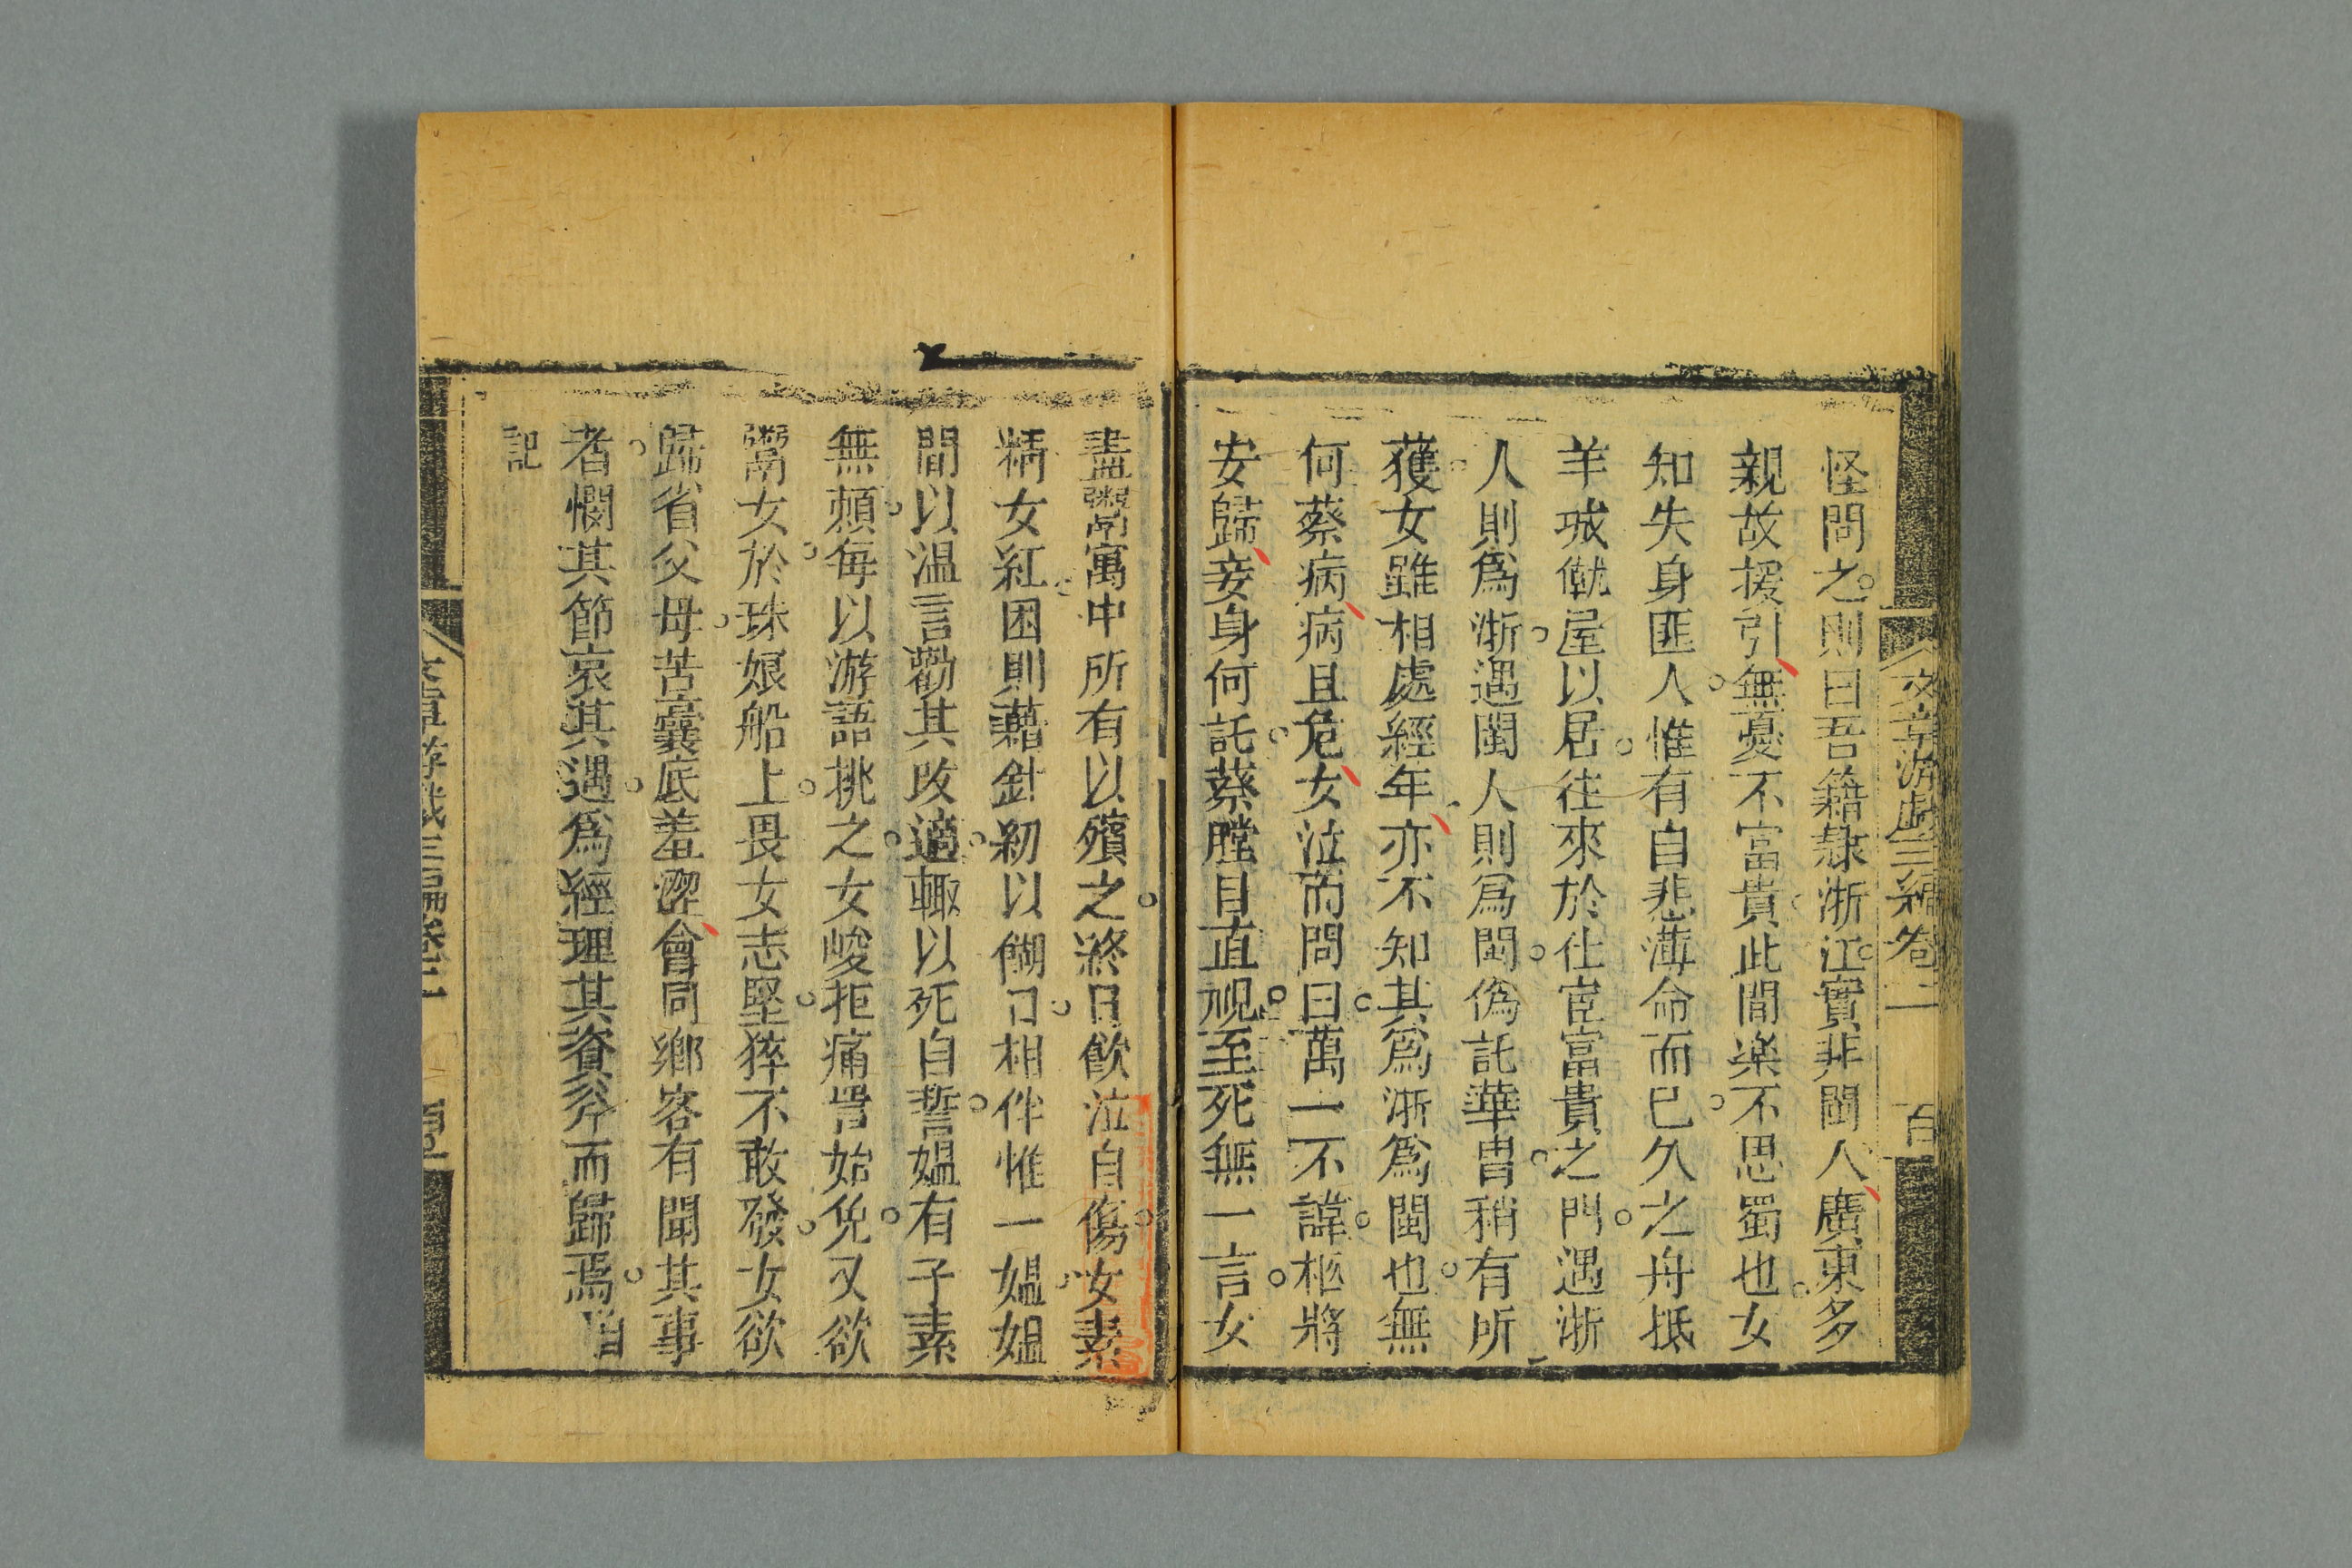 文章游戲三編卷二 百
怪問之則曰吾籍隸浙江實非閩人廣東多
親故援引無憂不富貴此間樂不思蜀也女
知失身匪人惟有自悲薄命而已久之舟抵
羊城僦屋以居往來於仕宦富貴之門遇浙
人則爲浙遇閩人則爲閩偽託華胄稍有所
獲女雖相處經年亦不知其爲浙爲閩也無
何蔡病病且危女泣而問曰萬一不諱柩將
安歸妾身何託蔡瞠目直視至死無一言女
盡鬻寓中所有以殯之終日飲泣自傷女素
精女紅困則藉針紉以餬口相伴惟一媼媼
間以温言勸其改適輒以死自誓媼有子素
無賴每以游語挑之女峻拒痛詈始免又欲
鬻女於珠娘船上畏女志堅猝不敢發女欲
歸省父母苦囊底羞澀會同鄉客有聞其事
者憫其節哀其遇爲經理其資斧而歸焉自
記
文章游戲三編卷二